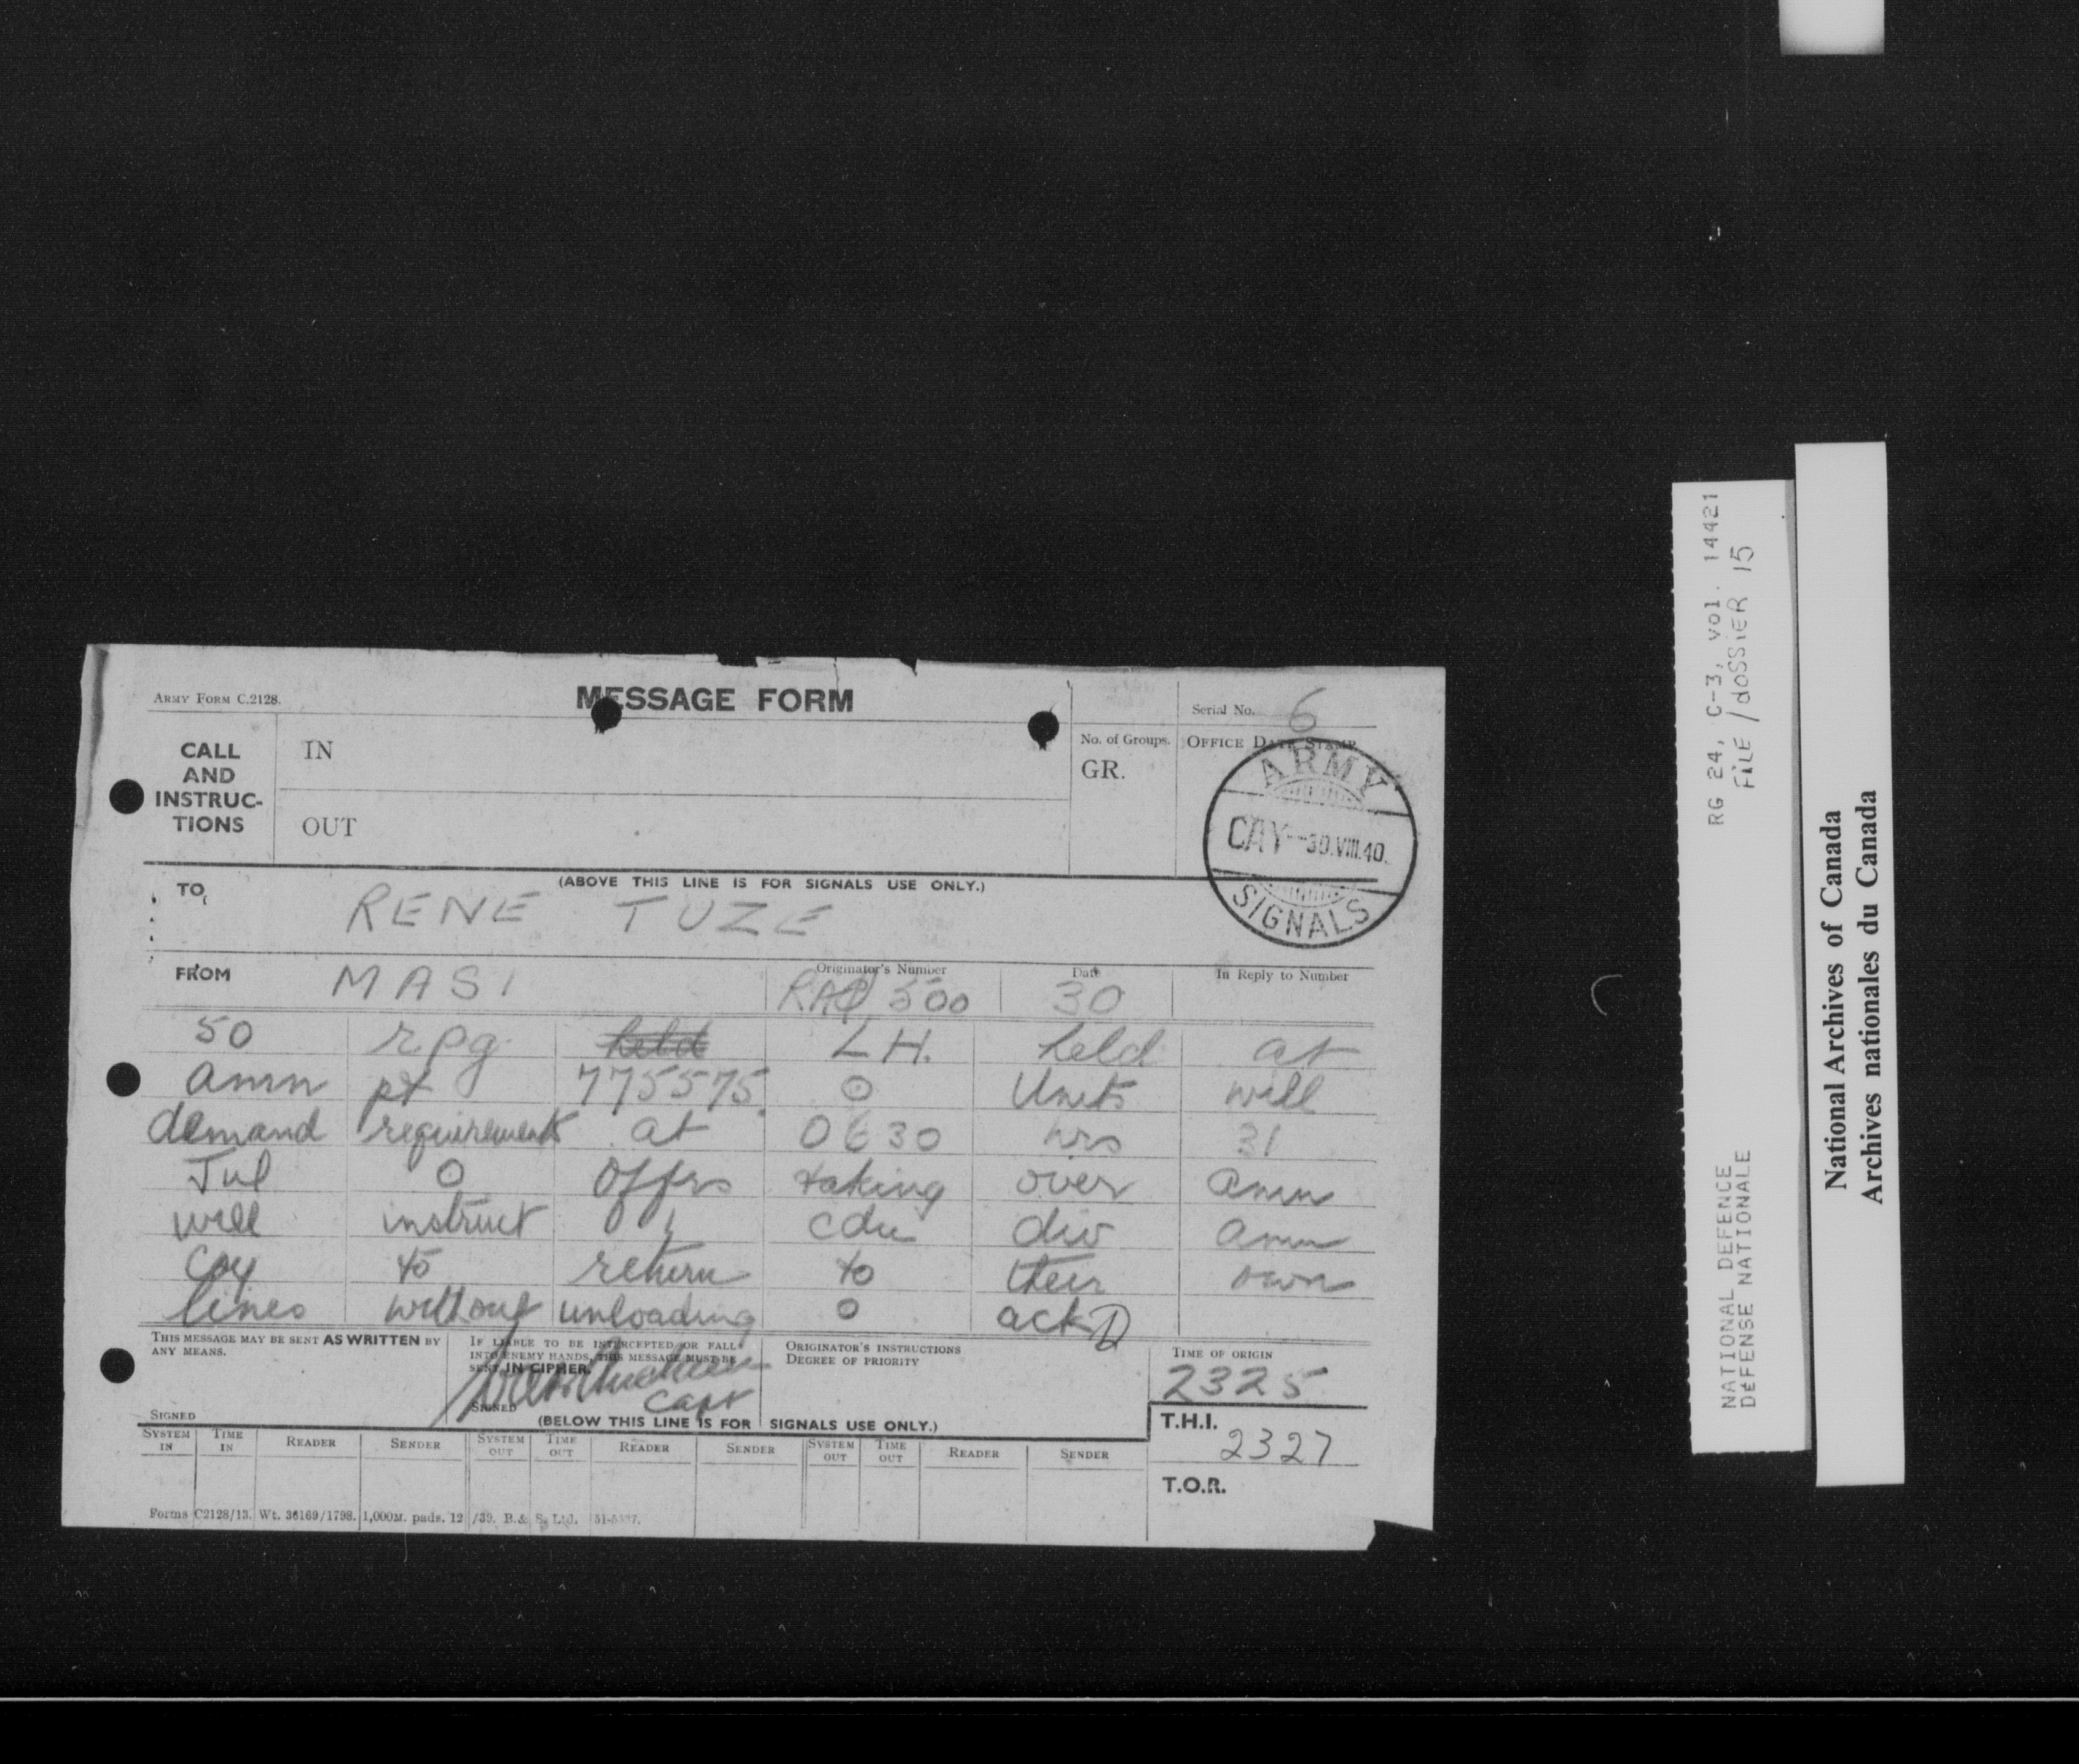 ARMY FORM C.2128.
MESSAGE FORM
Serial No. 6
CALL AND INSTRUC-TIONS
IN
OUT
No. of Groups.
GR.
OFFICE DATE STAMP
ARMY
CAY--30.VIII.40.
SIGNALS
(ABOVE THIS LINE IS FOR SIGNALS USE ONLY.)
TO
RENE TUZE
FROM MASI
Originator's Number
500
Date
30
In Reply to Number
50 rpg held LH. held at
amn pt 775575. O Units will
demand requirements at 0630 hrs 31
Jul O Offrs taking over amn
will instruct cdn div amn
coy to return to their own
lines without unloading O ack
THIS MESSAGE MAY BE SENT AS WRITTEN BY
ANY MEANS.
SIGNED
IF LIABLE TO BE INTERCEPTED OR FALL
INTO ENEMY HANDS, THIS MESSAGE MUST BE
SENT IN CIPHER.
Capt
SIGNED
ORIGINATOR'S INSTRUCTIONS
DEGREE OF PRIORITY
TIME OF ORIGIN
2325
(BELOW THIS LINE IS FOR SIGNALS USE ONLY.)
T.H.I.
2327
T.O.R.
SYSTEM IN TIME IN READER SENDER SYSTEM OUT TIME OUT READER SENDER SYSTEM OUT TIME OUT READER SENDER
Forms C2128/13. Wt. 36169/1798. 1,000M. pads. 12/39. B.& S. Ltd.
RG 24, C-3, vol. 14421
FILE/dOSSiER 15
NATIONAL DEFENCE
DÉFENSE NATIONALE
National Archives of Canada
Archives nationales du Canada